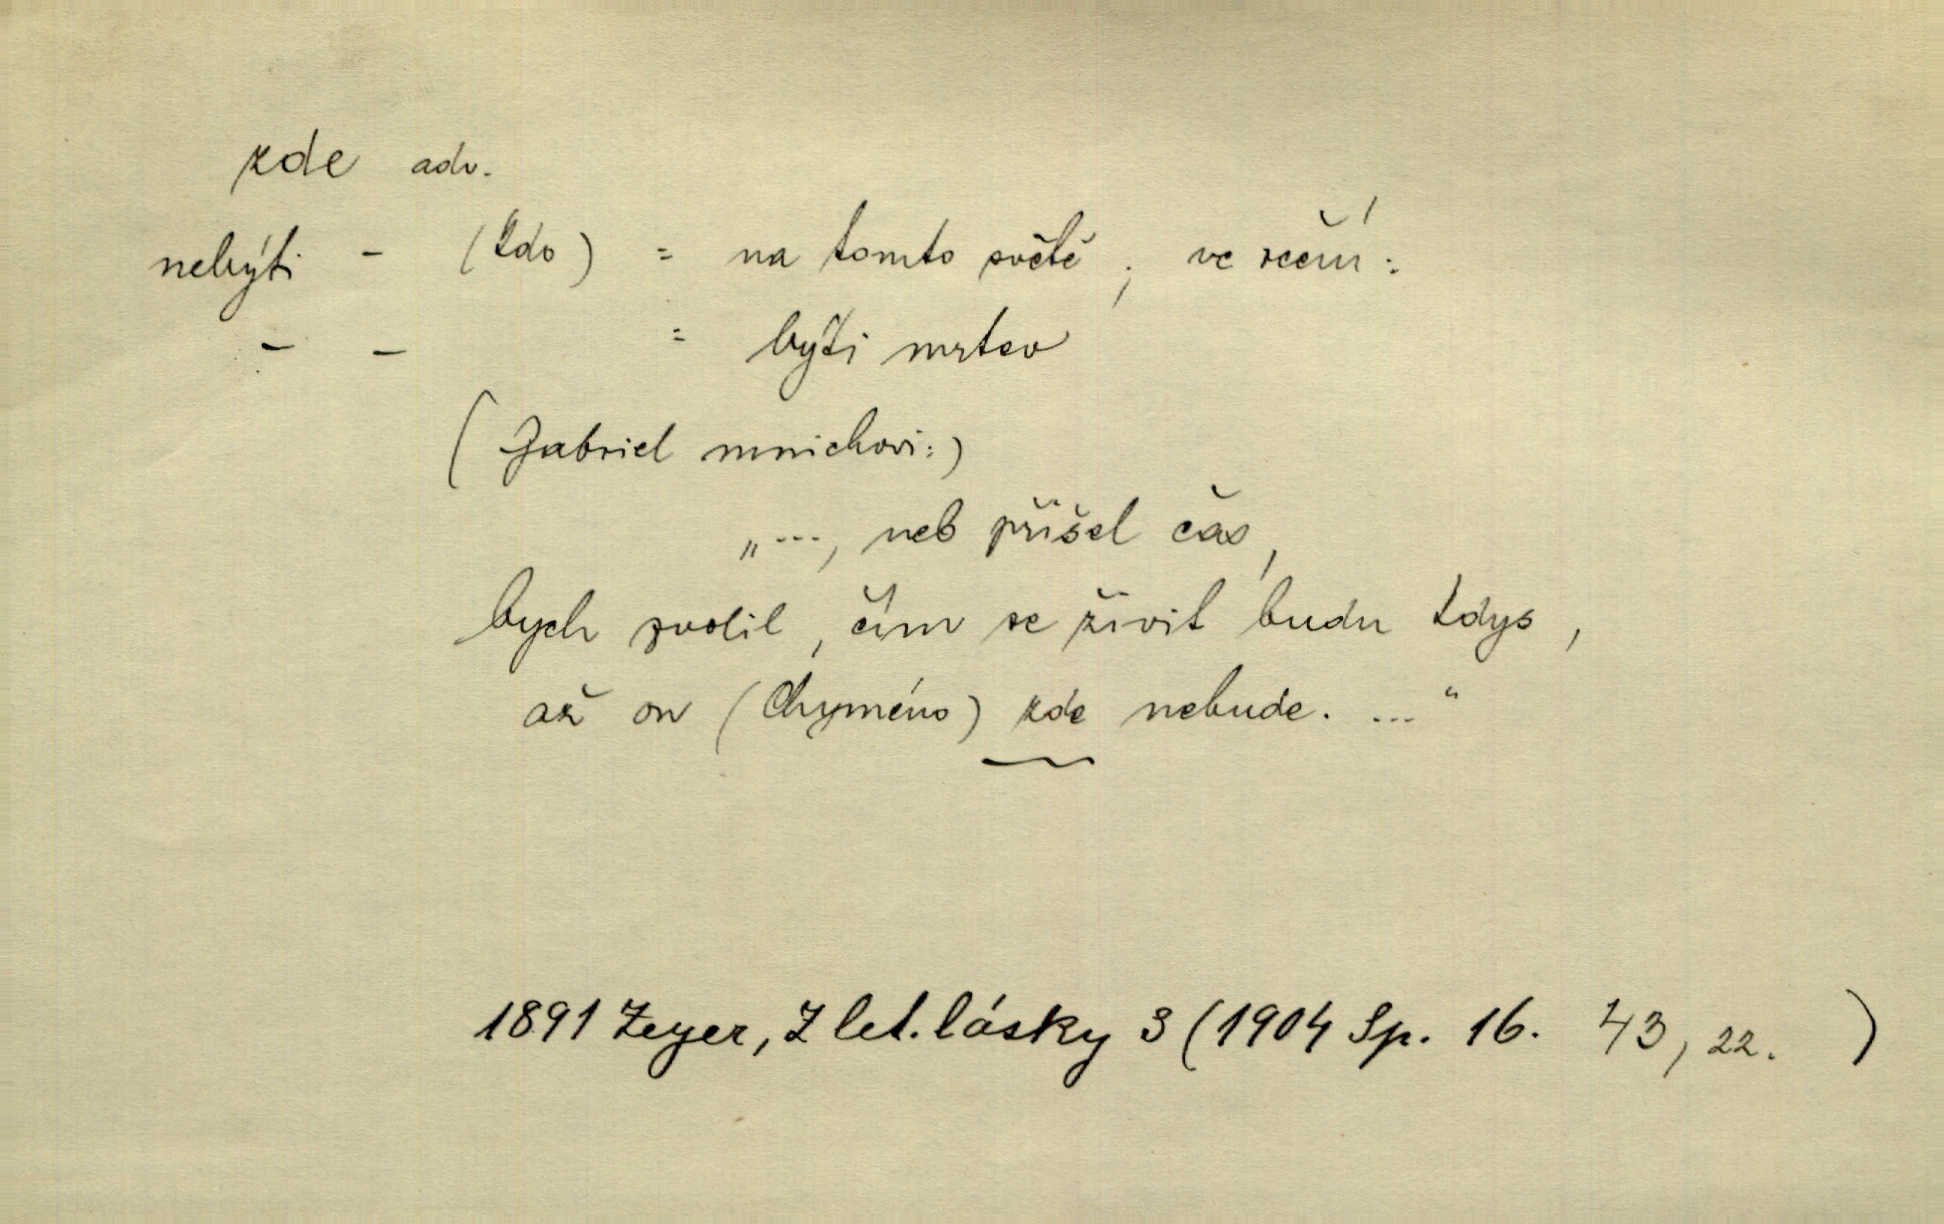 zde adv.
nebýti - (kdo) = na tomto světě; ve rčení:
- - = býti mrtev
(Gabriel mnichovi:)
„..., neb přišel čas,
bych zvolil, čím se živit budu kdys,
až on (Chyméno) zde nebude. ..."
1891 Zeyer, Z let. lásky 3 (1904 Sp. 16. 43, 22. )